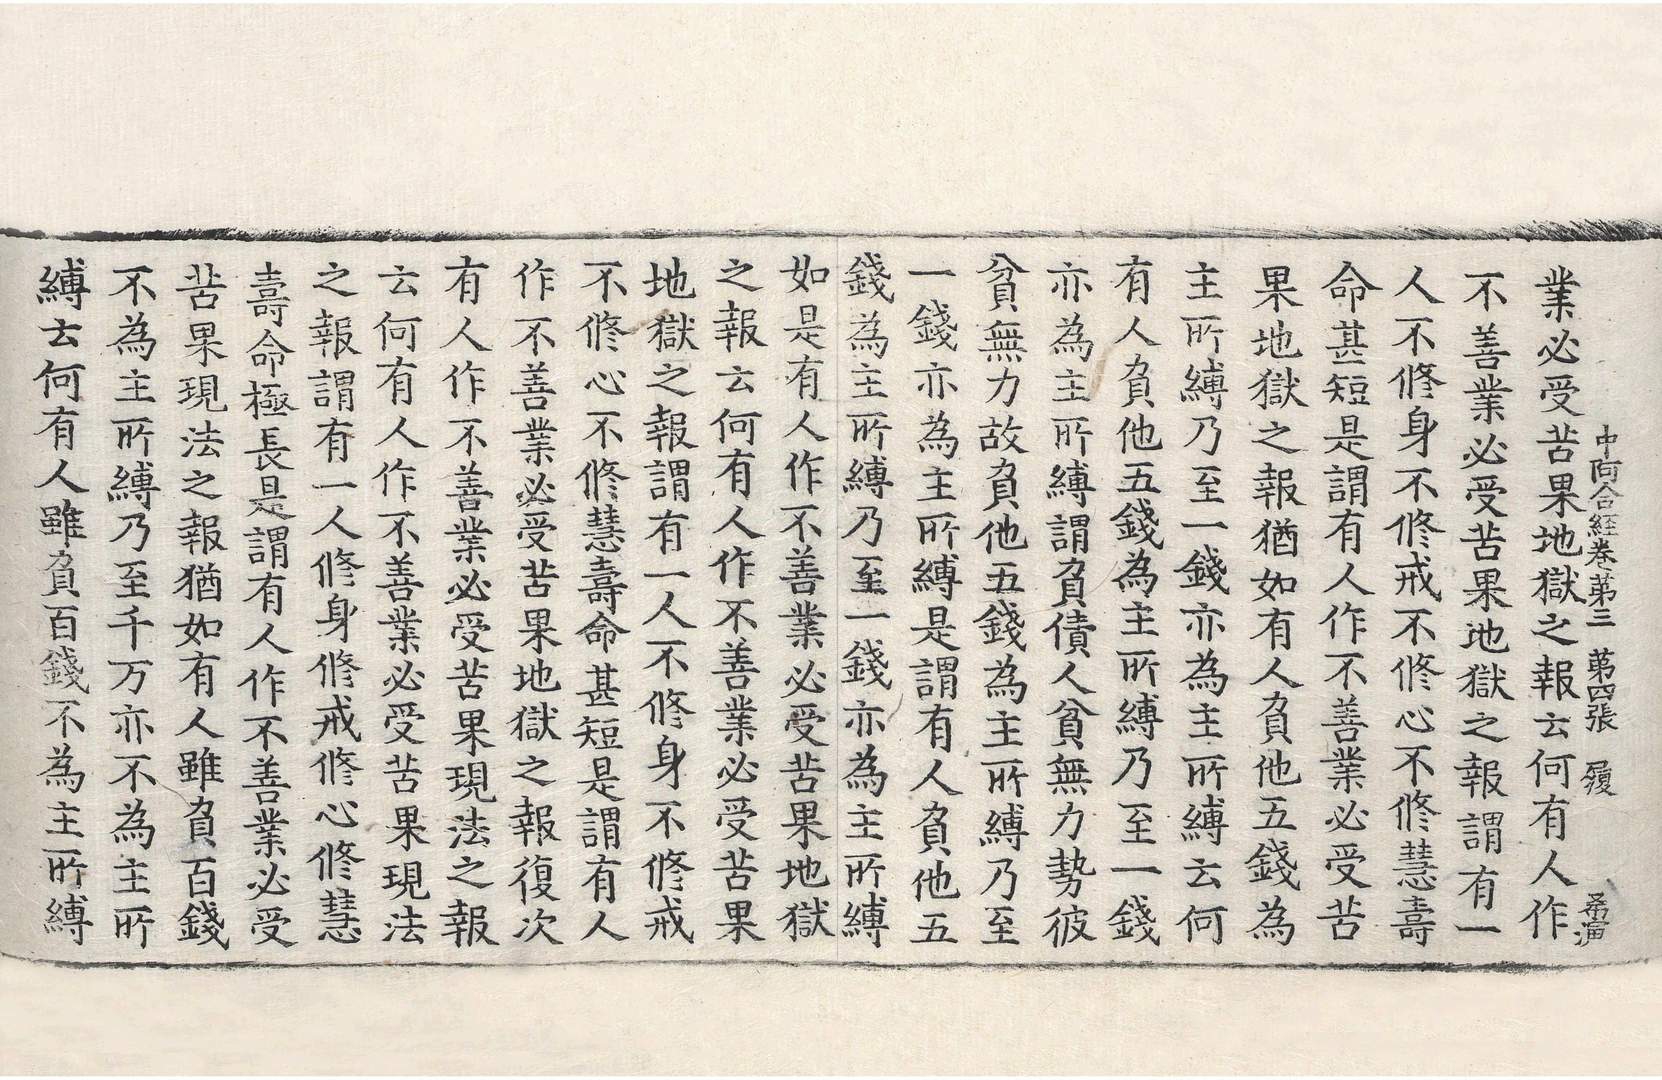 中阿含経卷第三 第四張 履 希演
業必受苦果地獄之報云何有人作
不善業必受苦果地獄之報謂有一
人不修身不修戒不修心不修慧壽
命甚短是謂有人作不善業必受苦
果地獄之報猶如有人負他五錢為
主所縛乃至一錢亦為主所縛云何
有人負他五錢為主所縛乃至一錢
亦為主所縛謂負債人貧無力勢彼
貧無力故負他五錢為主所縛乃至
一錢亦為主所縛是謂有人負他五
錢為主所縛乃至一錢亦為主所縛
如是有人作不善業必受苦果地獄
之報云何有人作不善業必受苦果
地獄之報謂有一人不修身不修戒
不修心不修慧壽命甚短是謂有人
作不善業必受苦果地獄之報復次
有人作不善業必受苦果現法之報
云何有人作不善業必受苦果現法
之報謂有一人修身修戒修心修慧
壽命極長是謂有人作不善業必受
苦果現法之報猶如有人雖負百錢
不為主所縛乃至千万亦不為主所
縛云何有人雖負百錢不為主所縛